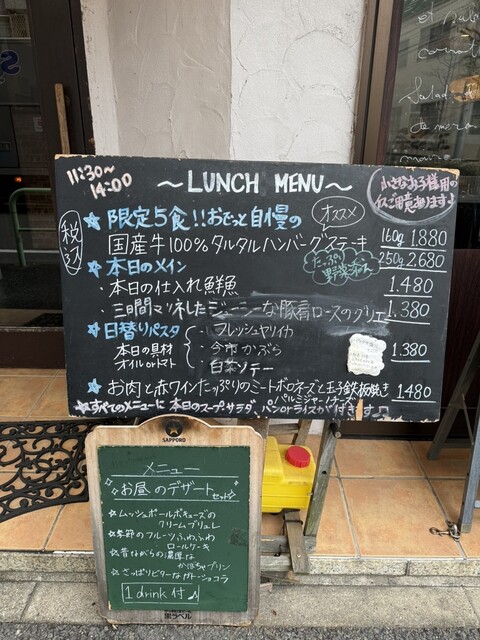 11:30~
14:00
~LUNCH MENU~
小さなお子様用の
イスご用意あります♪
税込
★限定5食!!おでっと自慢の
オススメ
国産牛100%タルタルハンバーグステーキ
160g 1.880
250g 2.680
たっぷり
野菜ソース
★本日のメイン
・本日の仕入れ鮮魚
1.480
・三日間マリネしたジューシーな豚肩ロースのグリエ
1.380
★日替りパスタ
本日の具材
オイルorトマト
・フレッシュヤリイカ
・今市かぶら
・白菜ソテー
1.380
★お肉と赤ワインたっぷりのミートボロネーズと玉子鉄板焼き
パルミジャーノチーズ
1480
★すべてのメニューに本日のスープ、サラダ、パンorライスが付きます♪
SAPPORO
メニュー
お昼のデザート
セット
★ムッシュポールボキューズの
クリームブリュレ
★季節のフルーツふわふわ
ロールケーキ
★昔ながらの濃厚な
かぼちゃプリン
★さっぱりビターなガトーショコラ
1 drink 付♪
黒ラベル